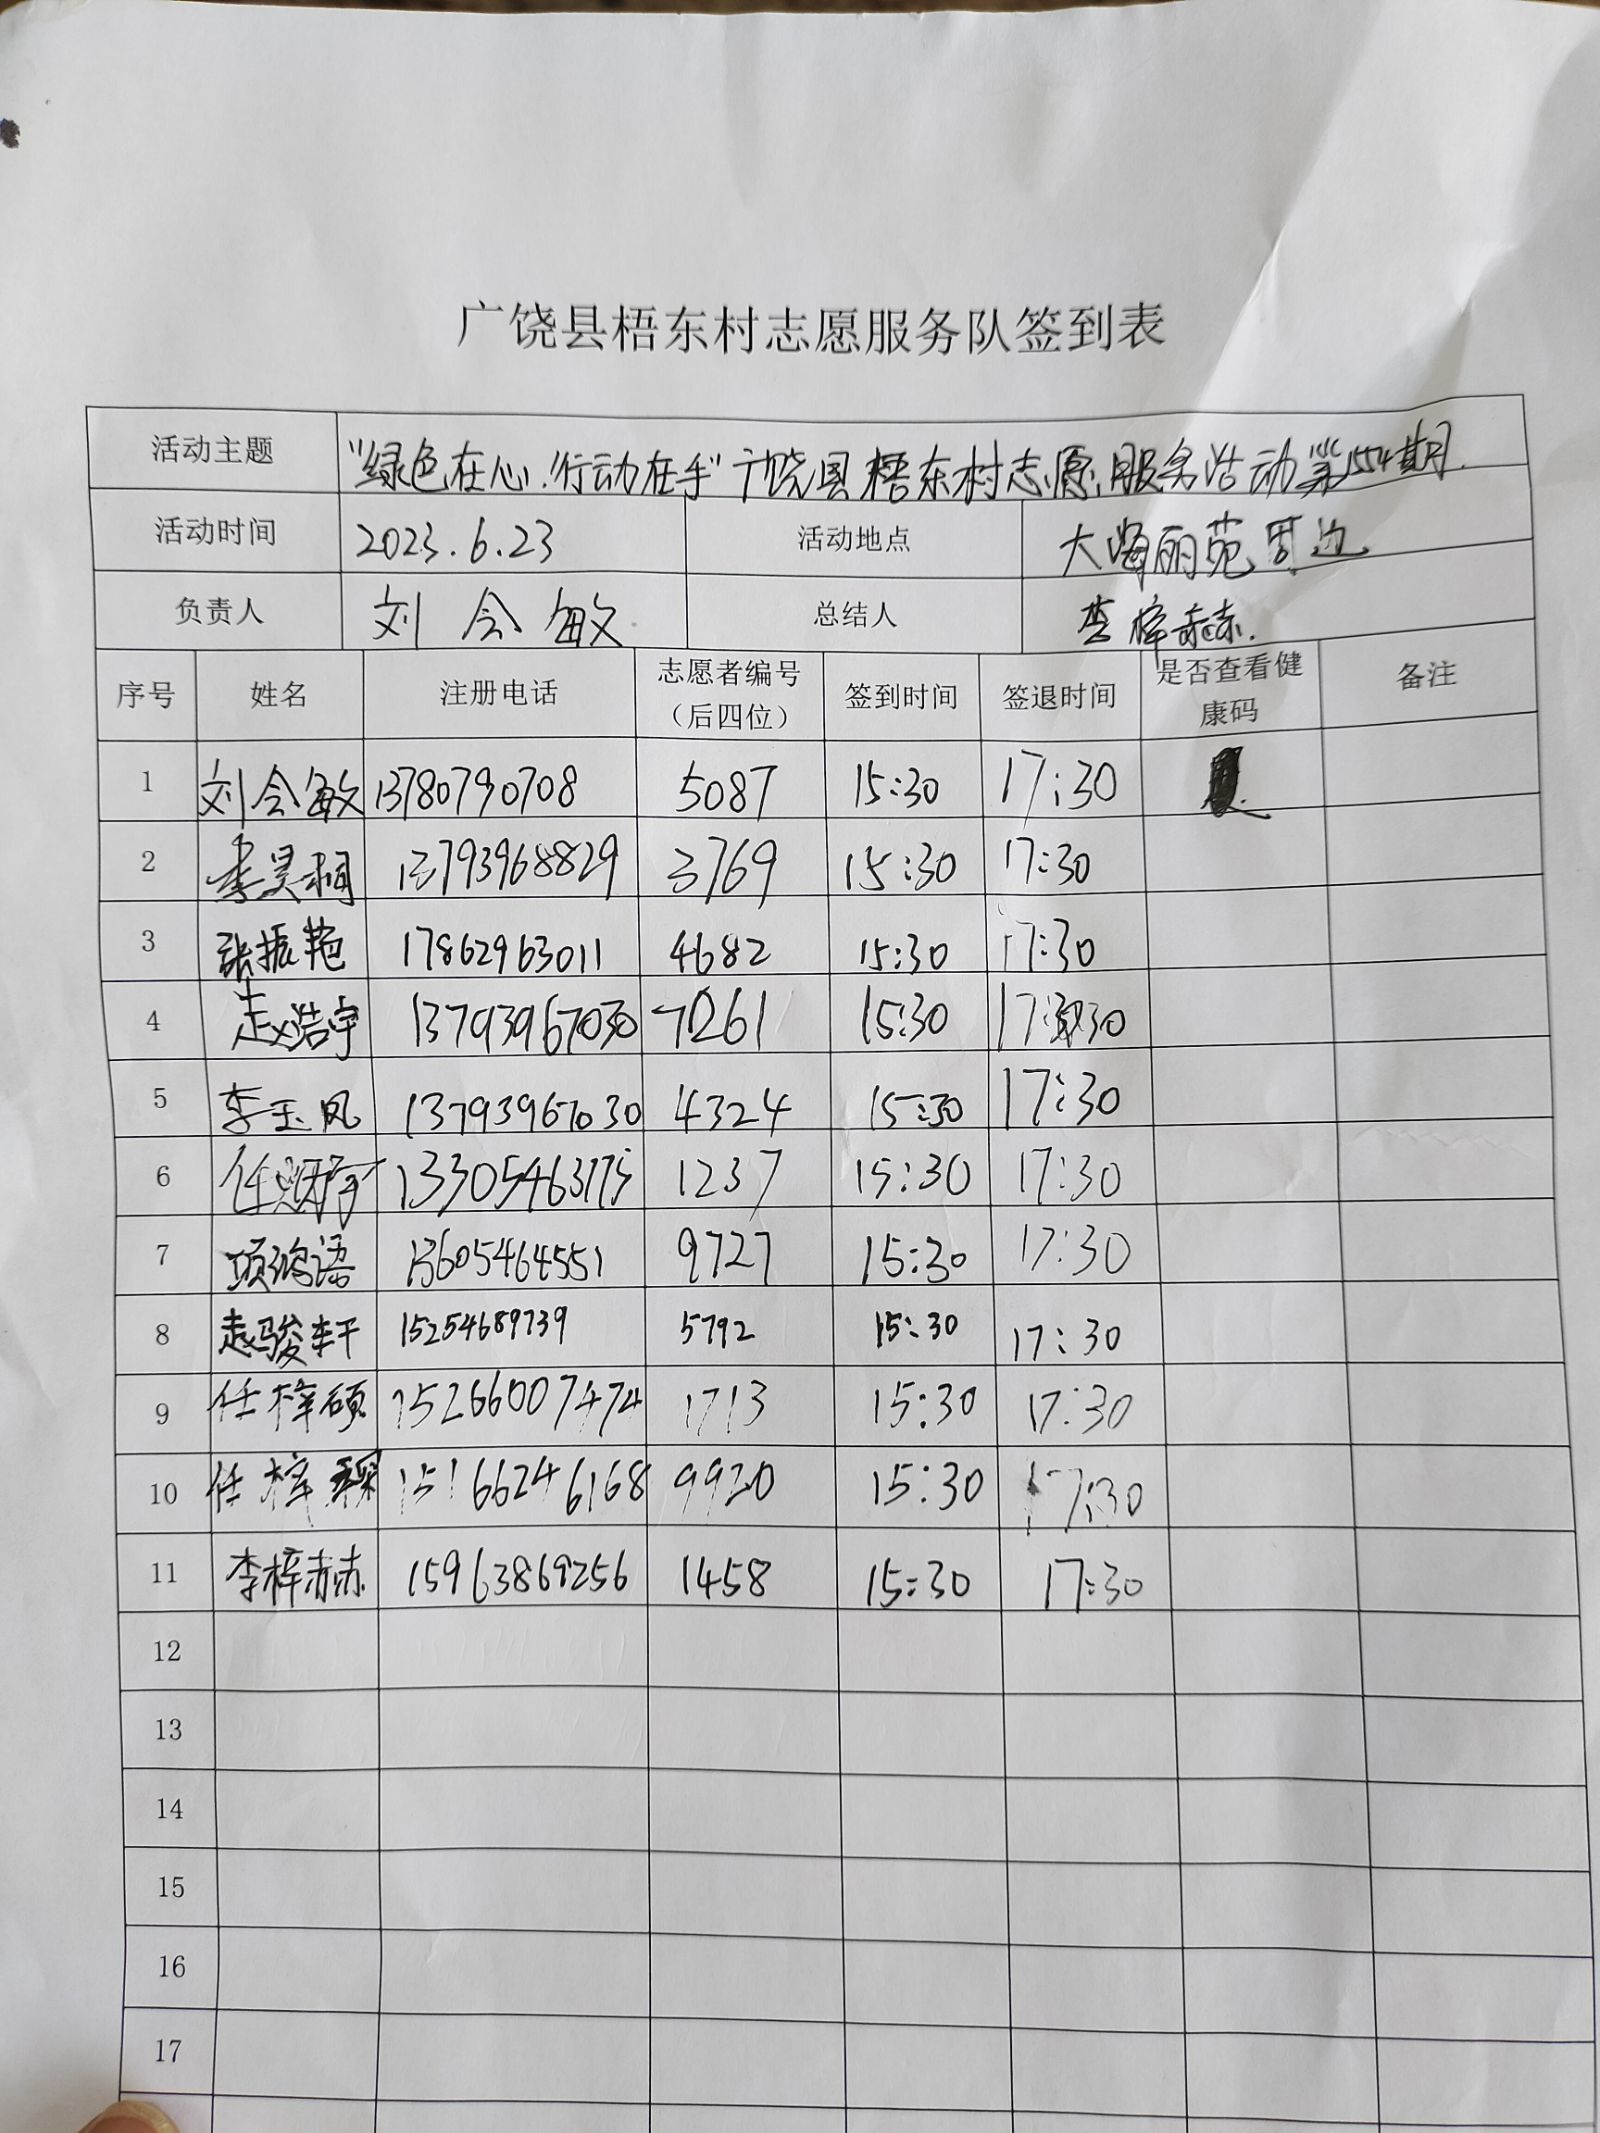 广饶县梧东村志愿服务队签到表
活动主题 "绿色在心.行动在手"广饶县梧东村志愿服务活动第1554期.
活动时间 2023.6.23 活动地点 大海丽苑周边
负责人 刘会敏 总结人 李梓赫.
序号 姓名 注册电话 志愿者编号（后四位） 签到时间 签退时间 是否查看健康码 备注
1 刘会敏 13780790708 5087 15:30 17:30
2 李昊桐 13793968829 3769 15:30 17:30
3 张振艳 17862963011 4682 15:30 17:30
4 赵浩宇 13793967030 7261 15:30 17:30
5 李玉凤 13793967030 4324 15:30 17:30
6 任 13305463175 1237 15:30 17:30
7 项 语 13605464551 9727 15:30 17:30
8 赵骏轩 15254689739 5792 15:30 17:30
9 任梓硕 15266007474 1713 15:30 17:30
10 任梓琛 15166246168 9920 15:30 17:30
11 李梓赫 15963869256 1458 15:30 17:30
12
13
14
15
16
17